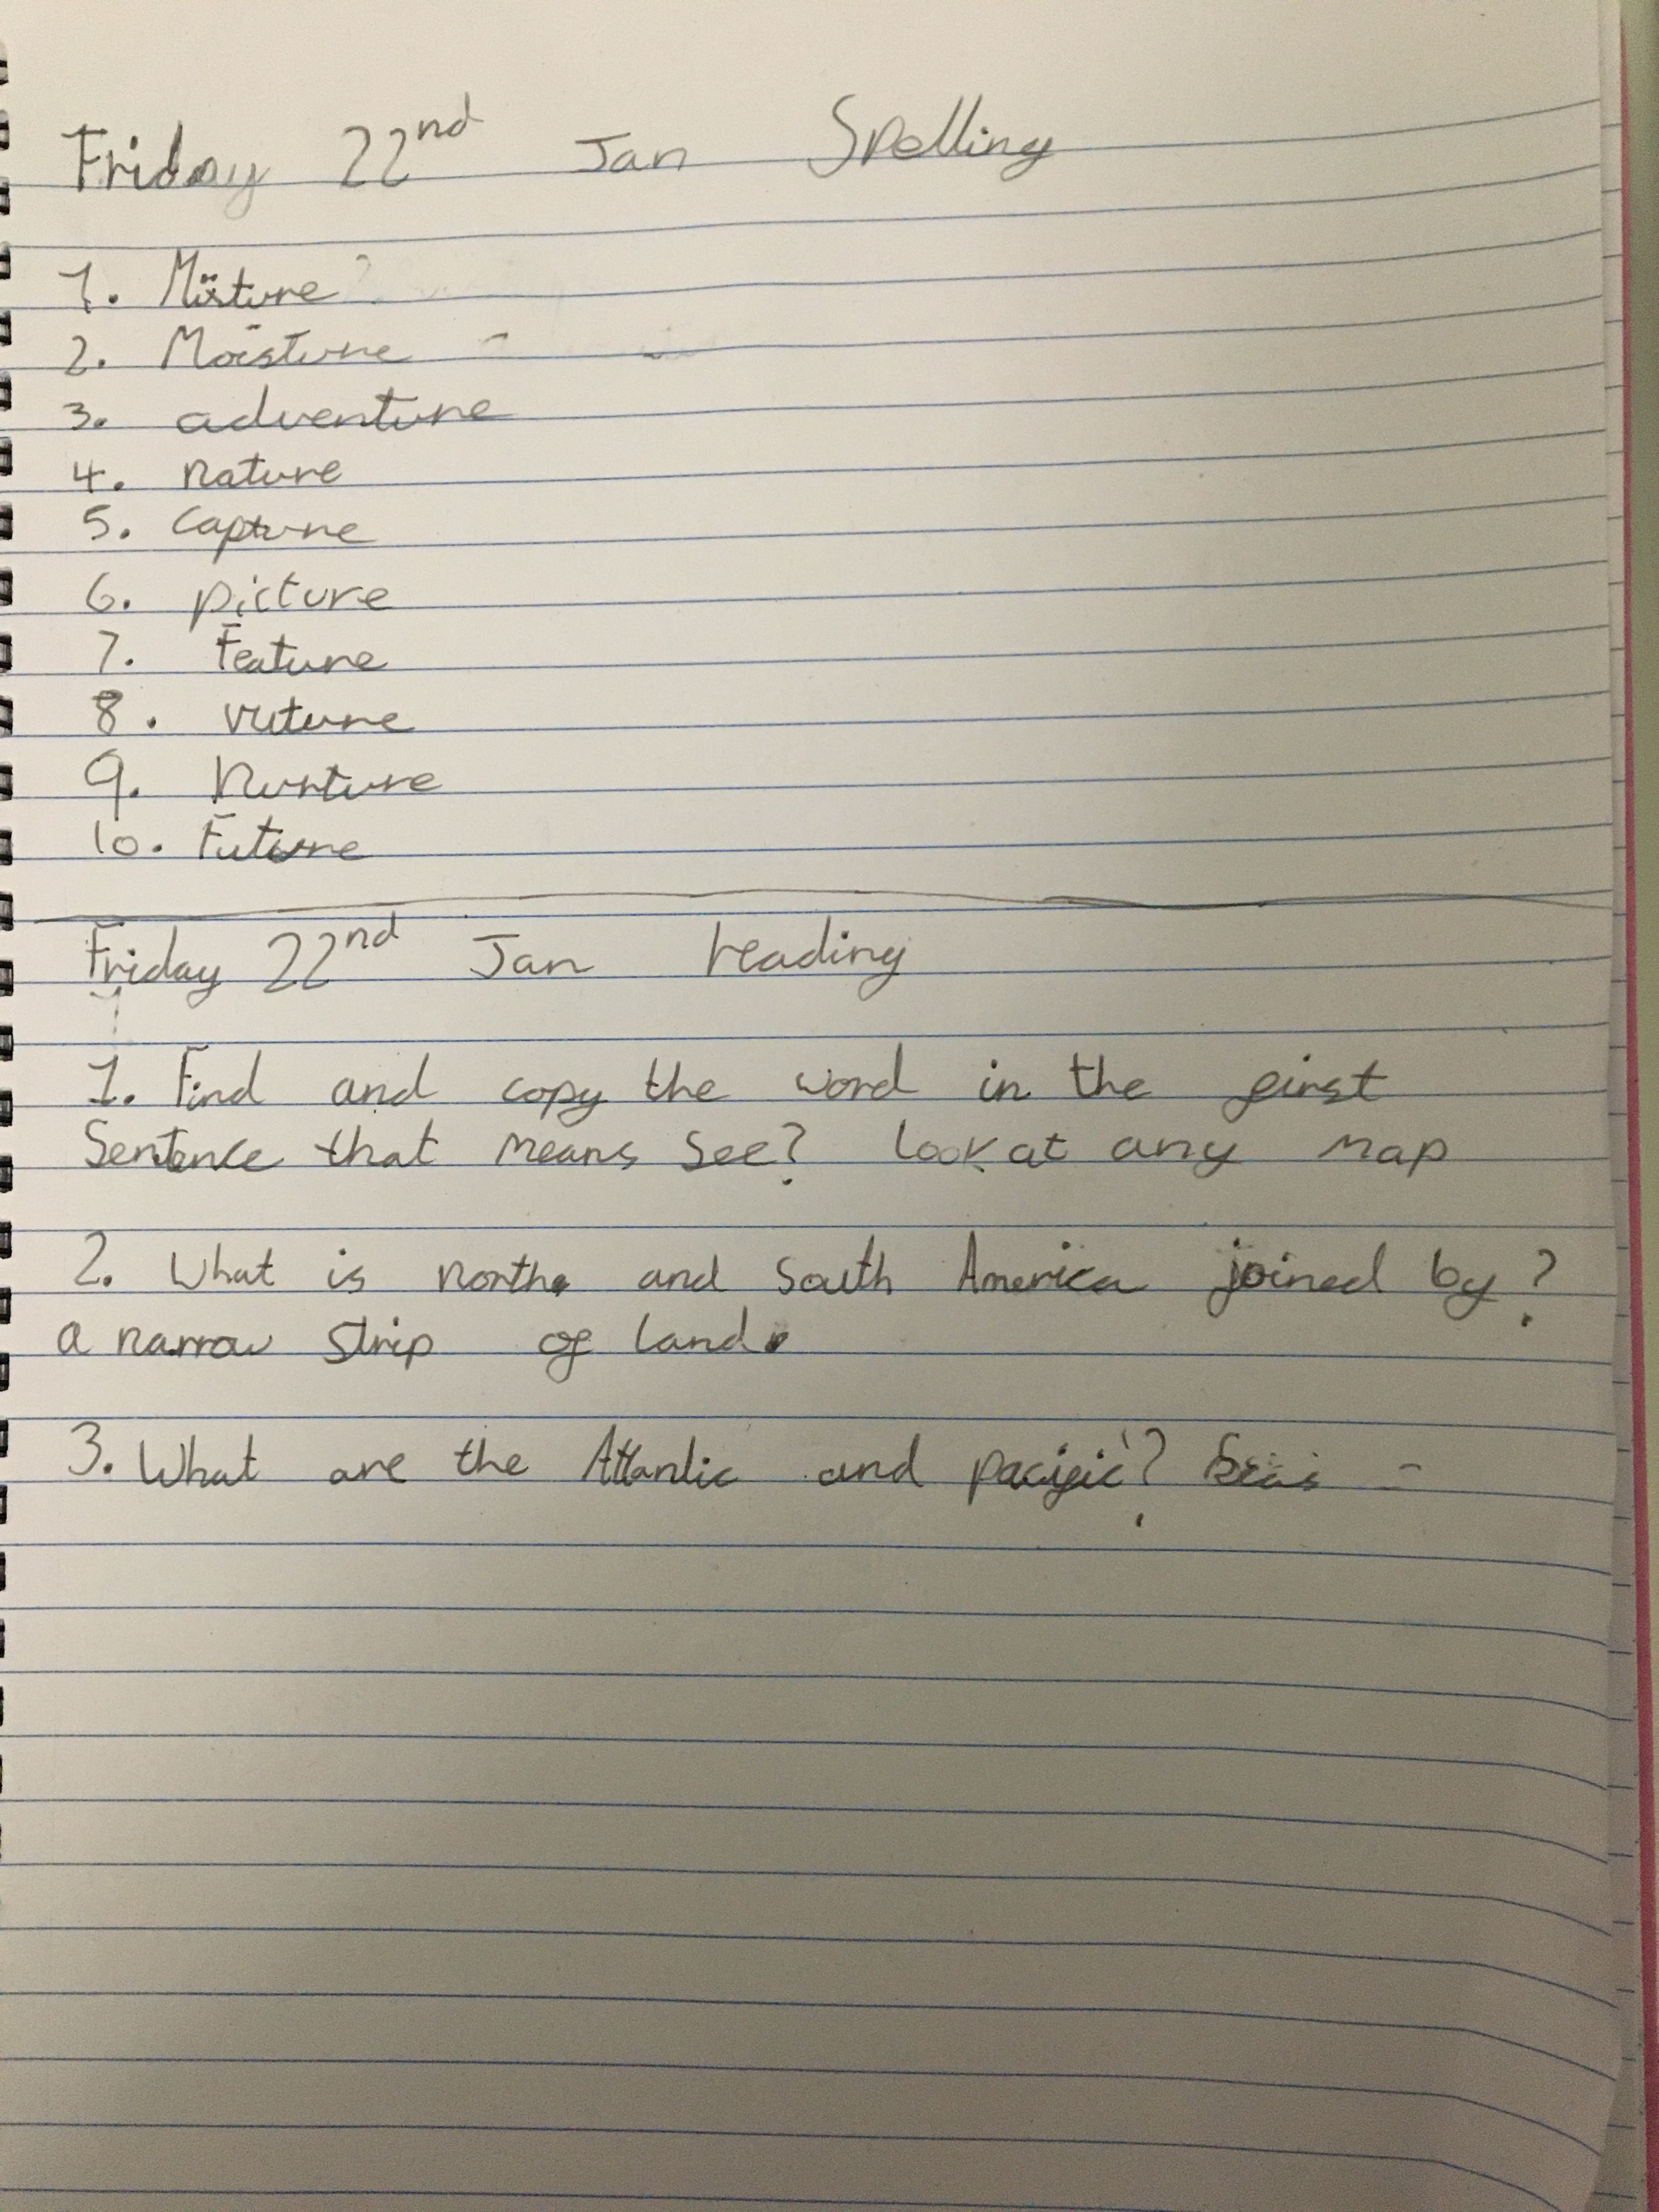 Friday 22nd Jan Spelling
1. Mixture
2. Moisture
3. adventure
4. nature
5. capture
6. picture
7. Feature
8. vuture
9. Nurture
10. Future
Friday 22nd Jan reading
1. Find and copy the word in the first
Sentence that means see? Look at any map
2. What is north and South America joined by?
a narrow strip of land.
3. What are the Atlantic and pacific? Seas